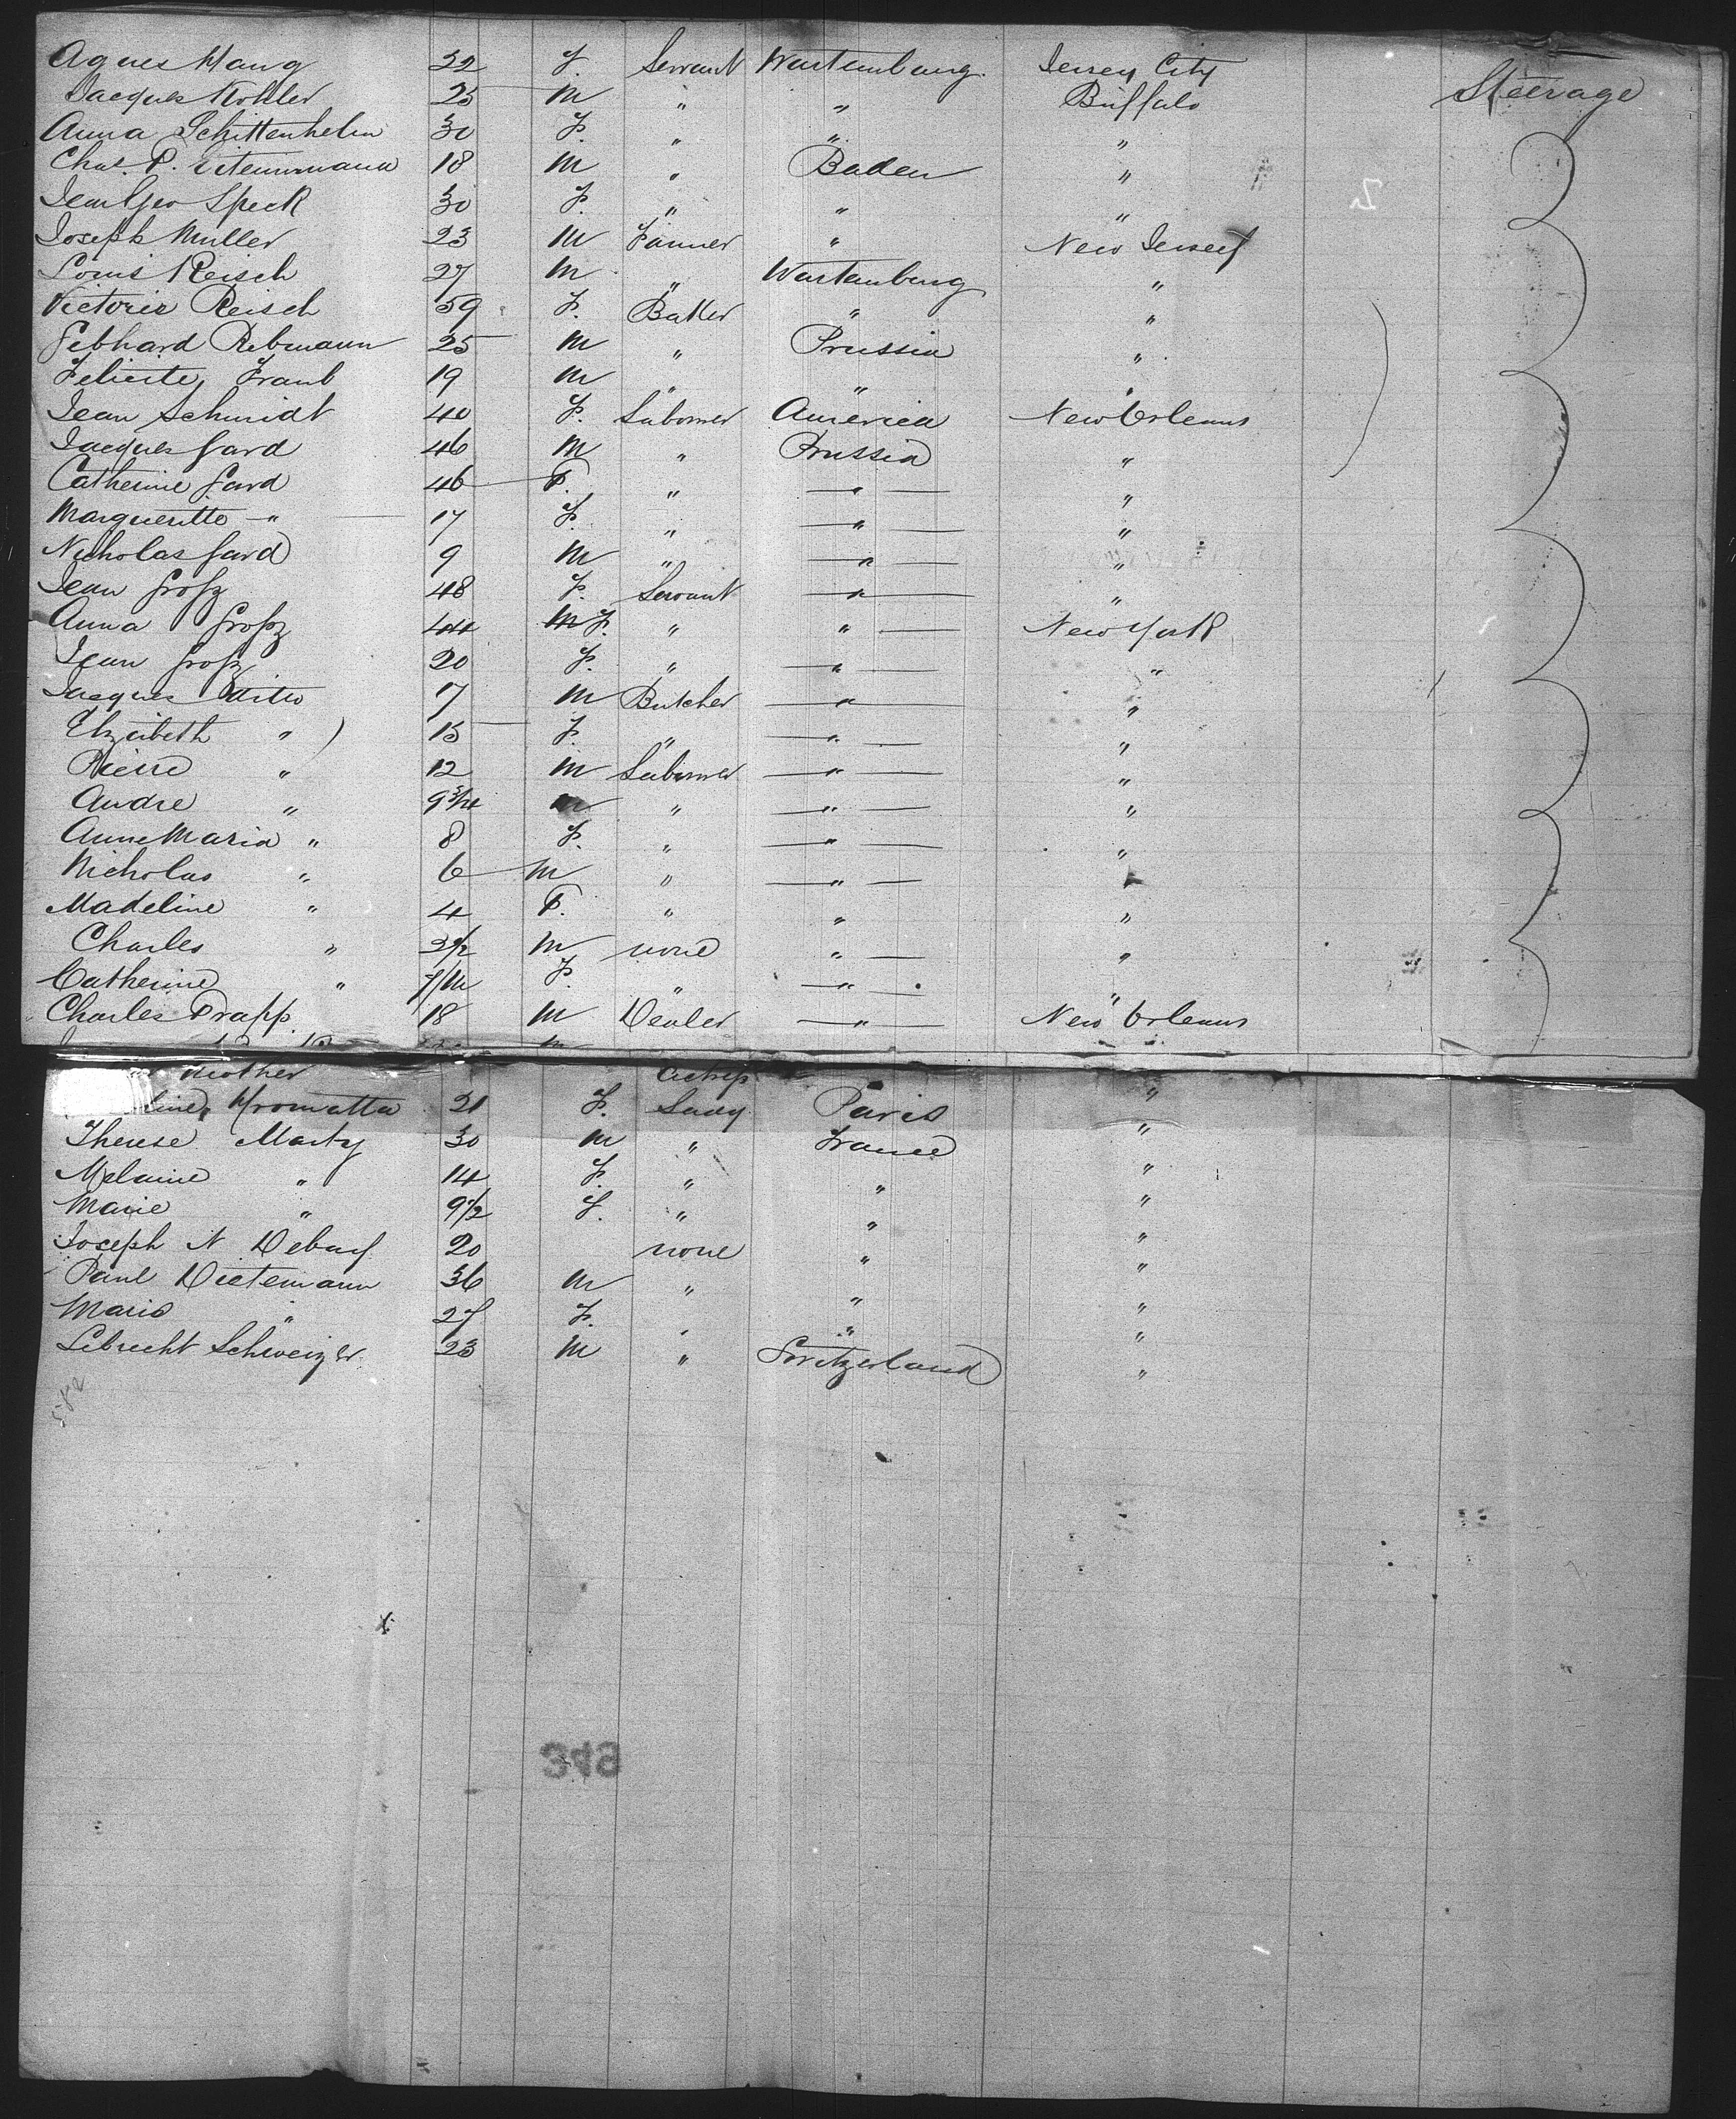 Agnes Haug 22 F. Servant Wurtemburg Jersey City
Jacques Kohler 25 M " " Buffalo Steerage
Anna Schittenhelm 30 F. " " "
Chas. P. 18 M " Baden "
Jean Geo Speck 30 F. " " "
Joseph Muller 23 M Farmer " New Jersey
Louis Reisch 27 M " Wurtemburg "
Victoria Reisch 59 F. Baker " "
Gebhard Rebmann 25 M " Prussia "
Felicite Traub 19 M " " "
Jean Schmidt 40 F. Laborer America New Orleans
Jacques Gard 46 M " Prussia "
Catherine Gard 46 F. " " "
Margueritte " 17 F. " " "
Nicholas Gard 9 M " " "
Jean Groß 48 F. Servant " "
Anna Groß 44 M F. " " New York
Jean Groß 20 F. " " "
Jacques ditto 17 M Butcher " "
Elizabeth " 15 F. " " "
Pierre " 12 M Laborer " "
Andre " 9 3/4 M " " "
Anne Maria " 8 F. " " "
Nicholas " 6 M " " "
Madeline " 4 F. " " "
Charles " 2 1/2 M none " "
Catherine " F. " " "
Charles Trapp 18 M Dealer " New Orleans
Mother
21 F. Lady Paris "
Therese Marty 30 M " France "
Melanie " 14 F. " " "
Marie " 9 1/2 F. " " "
Joseph N 20 none " "
Paul Dietemann 36 M " " "
Marie " 27 F. " " "
Lebrecht Schweizer 23 M " Switzerland "
582
349